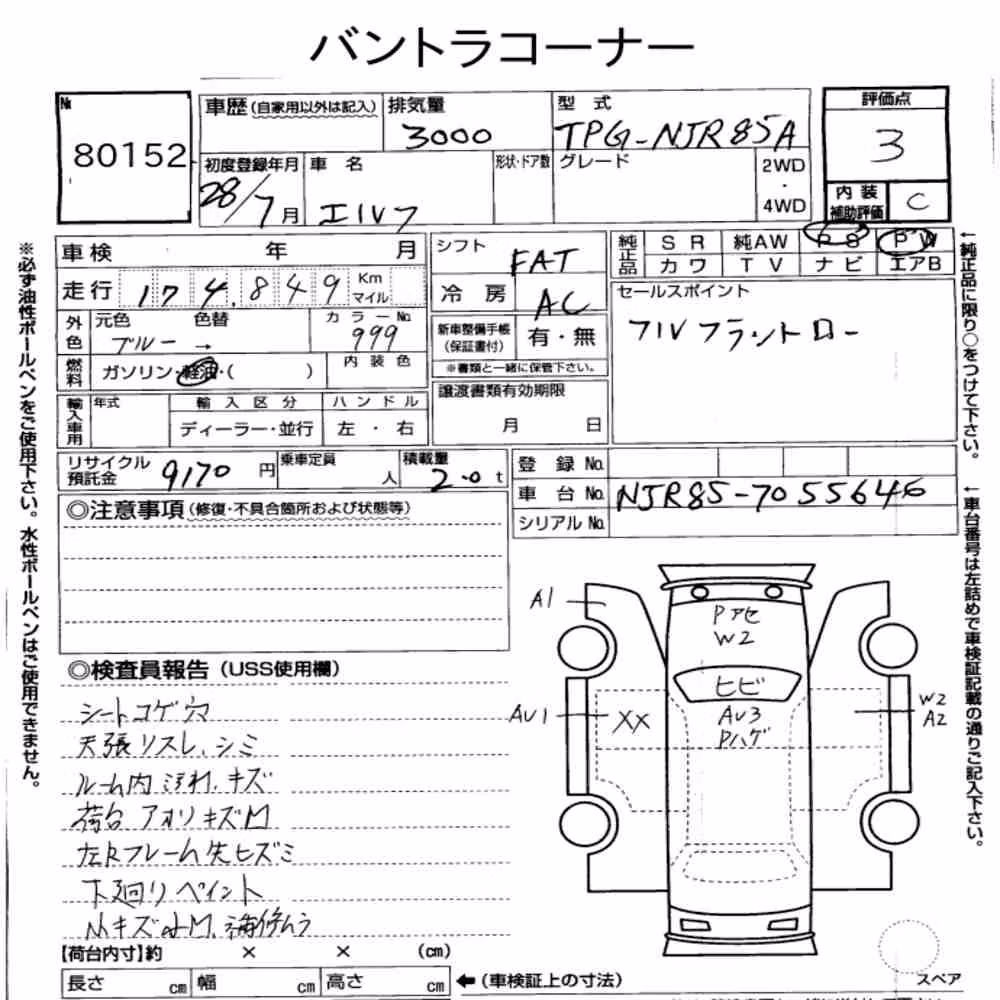 バントラコーナー
№ 80152
車歴(自家用以外は記入)
排気量 3000
型式 TPG-NJR85A
評価点 3
内装補助評価 C
初度登録年月 28/7月
車名 エルフ
形状・ドア数
グレード
2WD・4WD
車検 年 月
シフト FAT
純正品 SR 純AW PS PW
カワ TV ナビ エアB
走行 174,849 Km マイル
冷房 AC
セールスポイント
フルフラットロー
外色 元色 ブルー → 色替
カラーNo. 999
新車整備手帳(保証書付) 有・無
※書類と一緒に保管下さい。
燃料 ガソリン・軽油・( )
内装色
譲渡書類有効期限
月 日
輸入車用 年式 輸入区分 ハンドル
ディーラー・並行 左・右
リサイクル預託金 9170円
乗車定員 人
積載量 2.0t
登録No.
車台No. NJR85-7055646
シリアルNo.
◎注意事項(修復・不具合箇所および状態等)
◎検査員報告(USS使用欄)
シートコゲ穴
天張リスレ、シミ
ルーム内汚れ、キズ
荷台アオリキズM
左Rフレーム先ヒズミ
下廻りペイント
小キズ小M、補修ムラ
【荷台内寸】約 × × (cm)
長さ cm 幅 cm 高さ cm
←(車検証上の寸法)
A1
Pアセ
W2
ヒビ
AU1
XX
AU3
Pハゲ
W2
A2
スペア
※必ず油性ボールペンをご使用下さい。水性ボールペンはご使用できません。
←純正品に限り○をつけて下さい。
←車台番号は左詰めで車検証記載の通りご記入下さい。